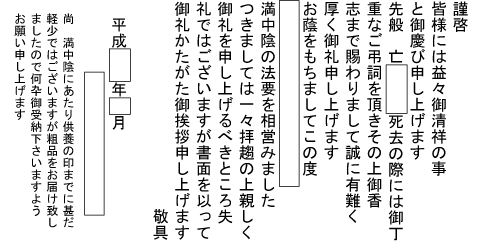 謹啓
皆様には益々御清祥の事
と御慶び申し上げます
先般　亡　死去の際には御丁
重なご弔詞を頂きその上御香
志まで賜わりまして誠に有難く
厚く御礼申し上げます
お蔭をもちましてこの度
満中陰の法要を相営みました
つきましては一々拝趨の上親しく
御礼を申し上げるべきところ失
礼ではございますが書面を以って
御礼かたがた御挨拶申し上げます
敬具
平成　年　月
尚　満中陰にあたり供養の印までに甚だ
軽少ではございますが粗品をお届け致し
ましたので何卒御受納下さいますよう
お願い申し上げます